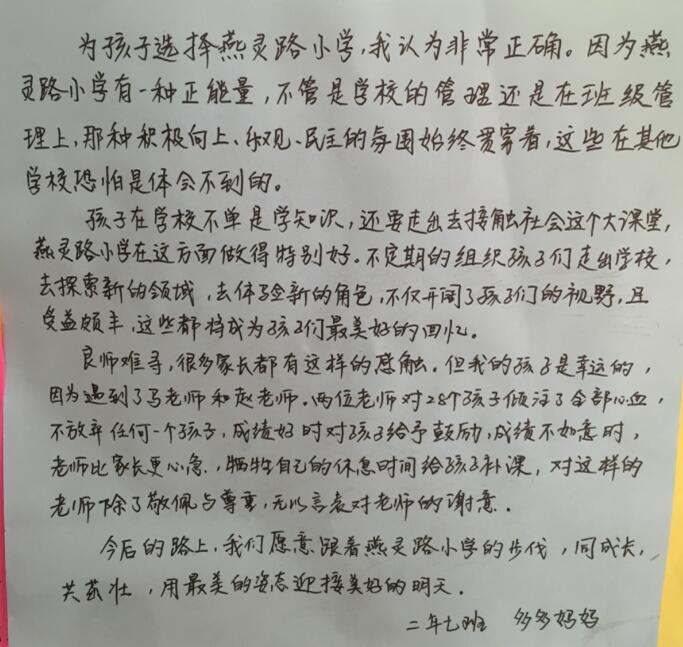 为孩子选择燕灵路小学,我认为非常正确。因为燕
灵路小学有一种正能量,不管是学校的管理还是在班级管
理上,那种积极向上、乐观、民主的氛围始终贯穿着,这些在其他
学校恐怕是体会不到的。
孩子在学校不单是学知识,还要走出去接触社会这个大课堂,
燕灵路小学在这方面做得特别好。不定期的组织孩子们走出学校,
去探索新的领域,去体验新的角色,不仅开阔了孩子们的视野,且
受益颇丰,这些都将成为孩子们最美好的回忆。
良师难寻,很多家长都有这样的感触。但我的孩子是幸运的,
因为遇到了马老师和赵老师。两位老师对28个孩子倾注了全部心血,
不放弃任何一个孩子,成绩好时对孩子给予鼓励,成绩不如意时,
老师比家长更心急,牺牲自己的休息时间给孩子补课,对这样的
老师除了敬佩与尊重,无以言表对老师的谢意。
今后的路上,我们愿意跟着燕灵路小学的步伐,同成长,
共茁壮,用最美的姿态迎接美好的明天。
二年七班 多多妈妈